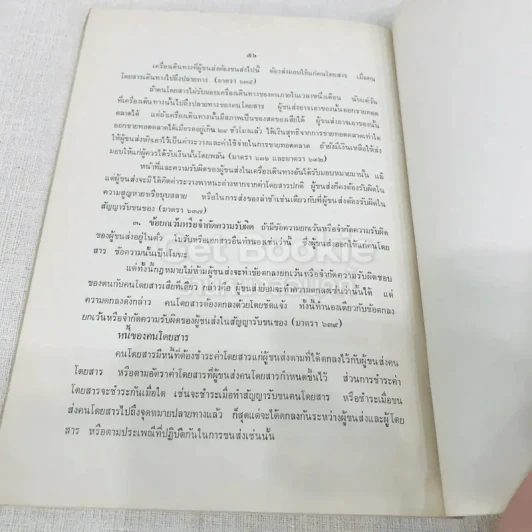 ๕๖
เครื่องเดินทางที่ผู้ขนส่งต้องขนส่งไปนี้ ต้องส่งมอบให้แก่คนโดยสาร เมื่อคน
โดยสารเดินทางไปถึงปลายทาง (มาตรา ๖๓๕)
ถ้าคนโดยสารไม่รับมอบเครื่องเดินทางของตนภายในเวลาหนึ่งเดือน นับแต่วัน
ที่เครื่องเดินทางนั้นไปถึงปลายทางของคนโดยสาร ผู้ขนส่งอาจเอาของนั้นออกขายทอด
ตลาดได้ แต่ถ้าเครื่องเดินทางนั้นมีสภาพเป็นของสดของเสียได้ ผู้ขนส่งอาจเอาของนั้น
ออกขายทอดตลาดได้เมื่อรออยู่เกิน ๒๔ ชั่วโมงแล้ว ได้เงินสุทธิจากการขายทอดตลาดเท่าใด
ให้ผู้ขนส่งหักเอาไว้เป็นค่าระวางและค่าใช้จ่ายในการขายทอดตลาด ถ้ายังมีเงินเหลือให้ส่ง
มอบให้แก่ผู้ควรได้รับเงินนั้นโดยพลัน (มาตรา ๖๓๖ และมาตรา ๖๓๒)
หน้าที่และความรับผิดของผู้ขนส่งในเครื่องเดินทางอันได้รับมอบหมายมานั้น แม้
แต่ผู้ขนส่งจะมิได้คิดค่าระวางพาหนะต่างหากจากค่าโดยสารปกติ ผู้ขนส่งก็คงต้องรับผิดใน
ความสูญหายหรือบุบสลาย หรือในการส่งของล่าช้าเช่นเดียวกับที่ผู้ขนส่งต้องรับผิดใน
สัญญารับขนของ (มาตรา ๖๓๗)
๓. ข้อยกเว้นหรือจำกัดความรับผิด ถ้ามีข้อความยกเว้นหรือจำกัดความรับผิด
ของผู้ขนส่งอยู่ในตั๋ว ใบรับหรือเอกสารอื่นทำนองเช่นว่านี้ ซึ่งผู้ขนส่งออกให้แก่คนโดย
สาร ข้อความนั้นเป็นโมฆะ
แต่ทั้งนี้กฎหมายไม่ห้ามผู้ขนส่งจะทำข้อตกลงยกเว้นหรือจำกัดความรับผิดชอบ
ของตนกับคนโดยสารเสียทีเดียว กล่าวคือ ผู้ขนส่งย่อมจะทำความตกลงเช่นว่านั้นได้ แต่
ความตกลงดังกล่าว คนโดยสารต้องตกลงด้วยโดยชัดแจ้ง ทั้งนี้ทำนองเดียวกับข้อตกลง
ยกเว้นหรือจำกัดความรับผิดของผู้ขนส่งในสัญญารับขนของ (มาตรา ๖๓๙)
หนี้ของคนโดยสาร
คนโดยสารมีหนี้ที่ต้องชำระค่าโดยสารแก่ผู้ขนส่งตามที่ได้ตกลงไว้กับผู้ขนส่งคน
โดยสาร หรือตามอัตราค่าโดยสารที่ผู้ขนส่งคนโดยสารกำหนดขึ้นไว้ ส่วนการชำระค่า
โดยสารจะชำระกันเมื่อใด เช่นจะชำระเมื่อทำสัญญารับขนคนโดยสาร หรือชำระเมื่อขน
ส่งคนโดยสารไปถึงจุดหมายปลายทางแล้ว ก็สุดแต่จะได้ตกลงกันระหว่างผู้ขนส่งและผู้โดย
สาร หรือตามประเพณีที่ปฏิบัติกันในการขนส่งเช่นนั้น
Get Bookie